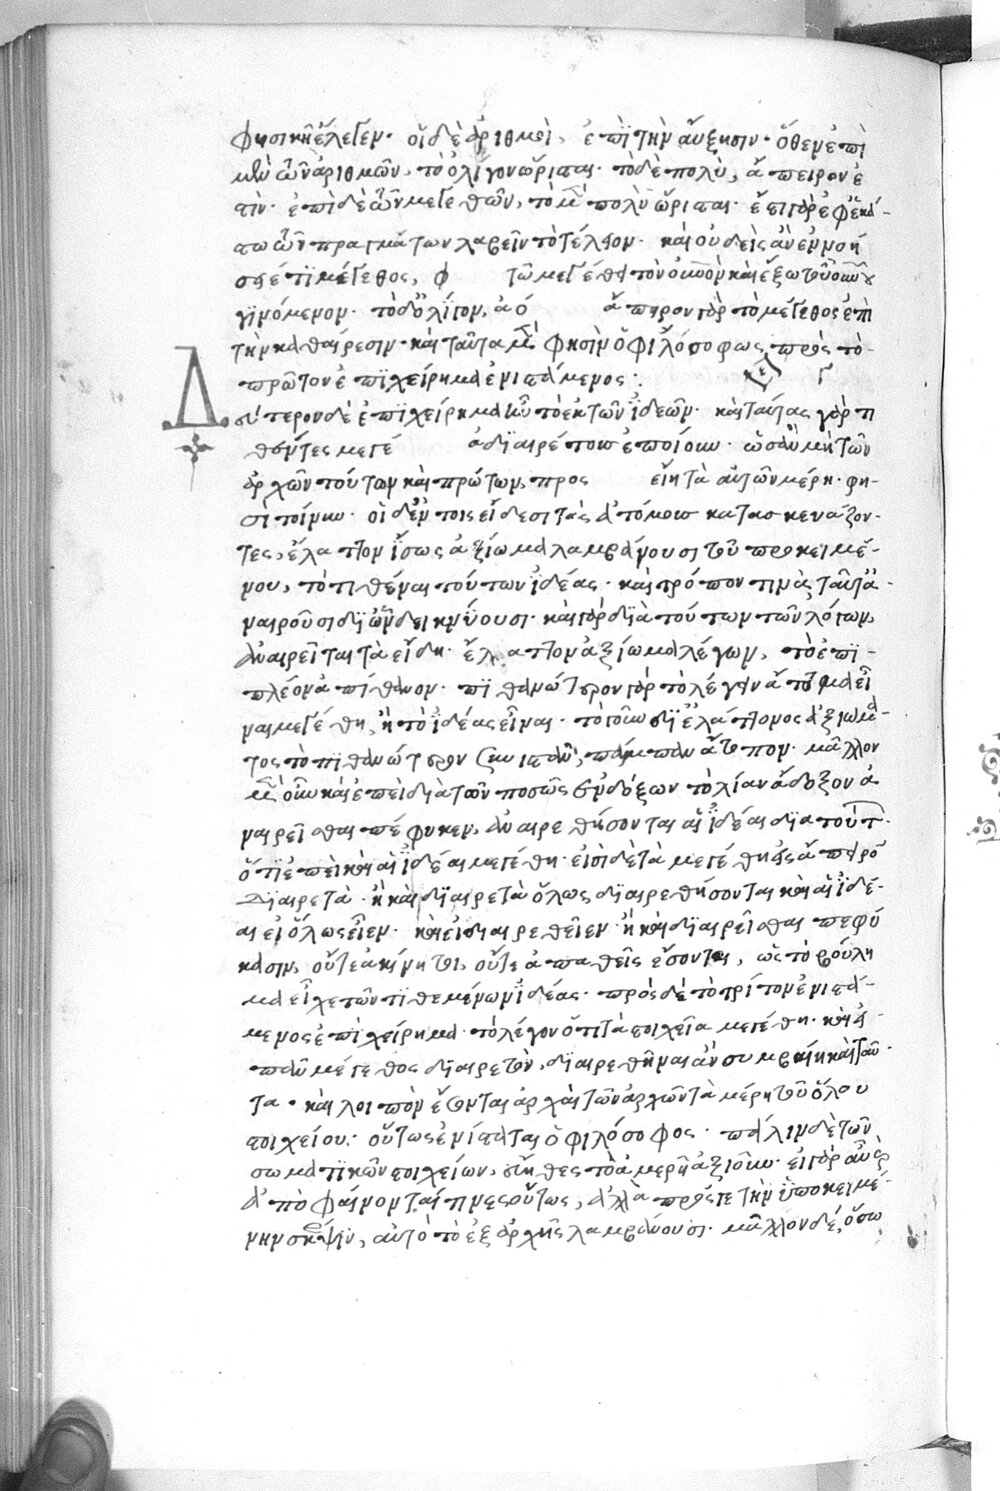 φησικὴ ἔλεγεν· οἱ δὲ ἀριθμοὶ, ἐπὶ τὴν αὔξησιν· ὅθεν ἐπὶ
μὲν ὧν ἀριθμῶν, τὸ ὀλίγον ὥρισται· τὸ δὲ πολὺ, ἄπειρον ἐ
στίν· ἐπὶ δὲ ὧν μεγεθῶν, τὸ μὲν πολὺ ὥρισται· ἔστι γὰρ ἐφ' ἑκά-
στω ὧν πραγμάτων λαβεῖν τὸ τέλειον· καὶ οὐδεὶς ἂν ἐννοή
σῃ ἔτι μέγεθος, τῶ μεγέθει τὸν οὐρανὸν καὶ ἔξω τοῦ οὐρανοῦ
γινόμενον· τὸ δ' ὀλίγον, ἀό ἄπειρον γὰρ τὸ μέγεθος ἐπὶ
τὴν καθαίρεσιν· καὶ ταῦτα μὲν φησὶν ὁ φιλόσοφως, πρὸς τὸ
πρῶτον ἐπιχείρημα ἐνιστάμενος:
Δεύτερον δὲ ἐπιχείρημα ἦν τὸ ἐκ τῶν ἰδεῶν· καὶ ταύτας γὰρ τι
θέντες μεγέ ἀδιαιρέτους ἐποίουν· ὡσὰν μὴ τῶν
ἀρχῶν τούτων καὶ πρώτων, προς εἴη τὰ αὐτῶν μέρη· φη-
σὶ τοίνυν· οἱ δ' ἐν τοις εἴδεσι τὰς ἀτόμους κατασκευάζον-
τες, ἔλαττον ἴσως ἀξίωμα λαμβάνουσι τοῦ προκειμέ-
νου, τὸ τιθέναι τούτων ἰδέας· καὶ τρόπον τινὰ ταῦτα ἀ-
ναιροῦσι δι' ὧν δεικνύουσι· καὶ γὰρ διὰ τούτων τῶν λόγων,
ἀναιρεῖται τὰ εἴδη· ἔλαττον ἀξίωμα λέγων, τὸ ἐπι-
πλέον ἀπίθανον· πιθανώτερον γὰρ τὸ λέγειν ἄτομα εἶ
ναι μεγέθη, ἢ τὸ ἰδέας εἶναι· τὸ γοῦν δι' ἐλάττονος ἀξιώμα-
τος τὸ πιθανώτερον συνιστᾶν, πάμπαν ἄτοπον· μᾶλλον
μὲν οὖν καὶ ἐπεὶ διὰ τῶν ποσῶς ἐνδόξων τὸ λίαν ἄδοξον ἀ
ναιρεῖσθαι πέφυκεν, ἀναιρεθήσονται αἱ ἰδέαι διὰ τούτων·
ὅτι ἐπεὶ καὶ αἱ ἰδέαι μεγέθη· εἰσὶ δὲ τὰ μεγέθη ἐς ἄπειρο
διαιρετὰ· ἢ καὶ διαιρετὰ ὅλως διαιρεθήσονται καὶ αἱ ἰδέ-
αι εἰ ὅλως εἶεν· καὶ εἰ διαιρεθεῖεν ἢ καὶ διαιρεῖσθαι πεφύ
κασιν, οὔτε ἀκίνητοι, οὔτε ἀπαθεῖς ἔσονται, ὡς τὸ βούλη
μα εἶχε τῶν τιθεμένων ἰδέας· πρὸς δὲ τὸ τρίτον ἐνιστά-
μενος ἐπιχείρημα· τὸ λέγον ὅτι τὰ στοιχεῖα μεγέθη· καὶ ἅ-
παν μέγεθος διαιρετὸν, διαιρεθῆναι ἂν συμβαίη καὶ ταῦ-
τα· καὶ λοιπὸν ἔσονται ἀρχαὶ τῶν ἀρχῶν τὰ μέρη τοῦ ὅλου
στοιχείου: οὕτως ἐνίσταται ὁ φιλόσοφος· πάλιν δὲ τῶν
σωματικῶν στοιχείων, εὔηθες τὸ ἀμερῆ ἀξιοῦν· εἰ γὰρ αὖ γὰρ
ἀποφαίνονταί τινες οὕτως, ἀλλὰ πρός γε τὴν ὑποκειμέ-
νην σκέψιν, αὐτὸ τὸ ἐξ ἀρχῆς λαμβάνουσι· μᾶλλον δέ, ὅσω